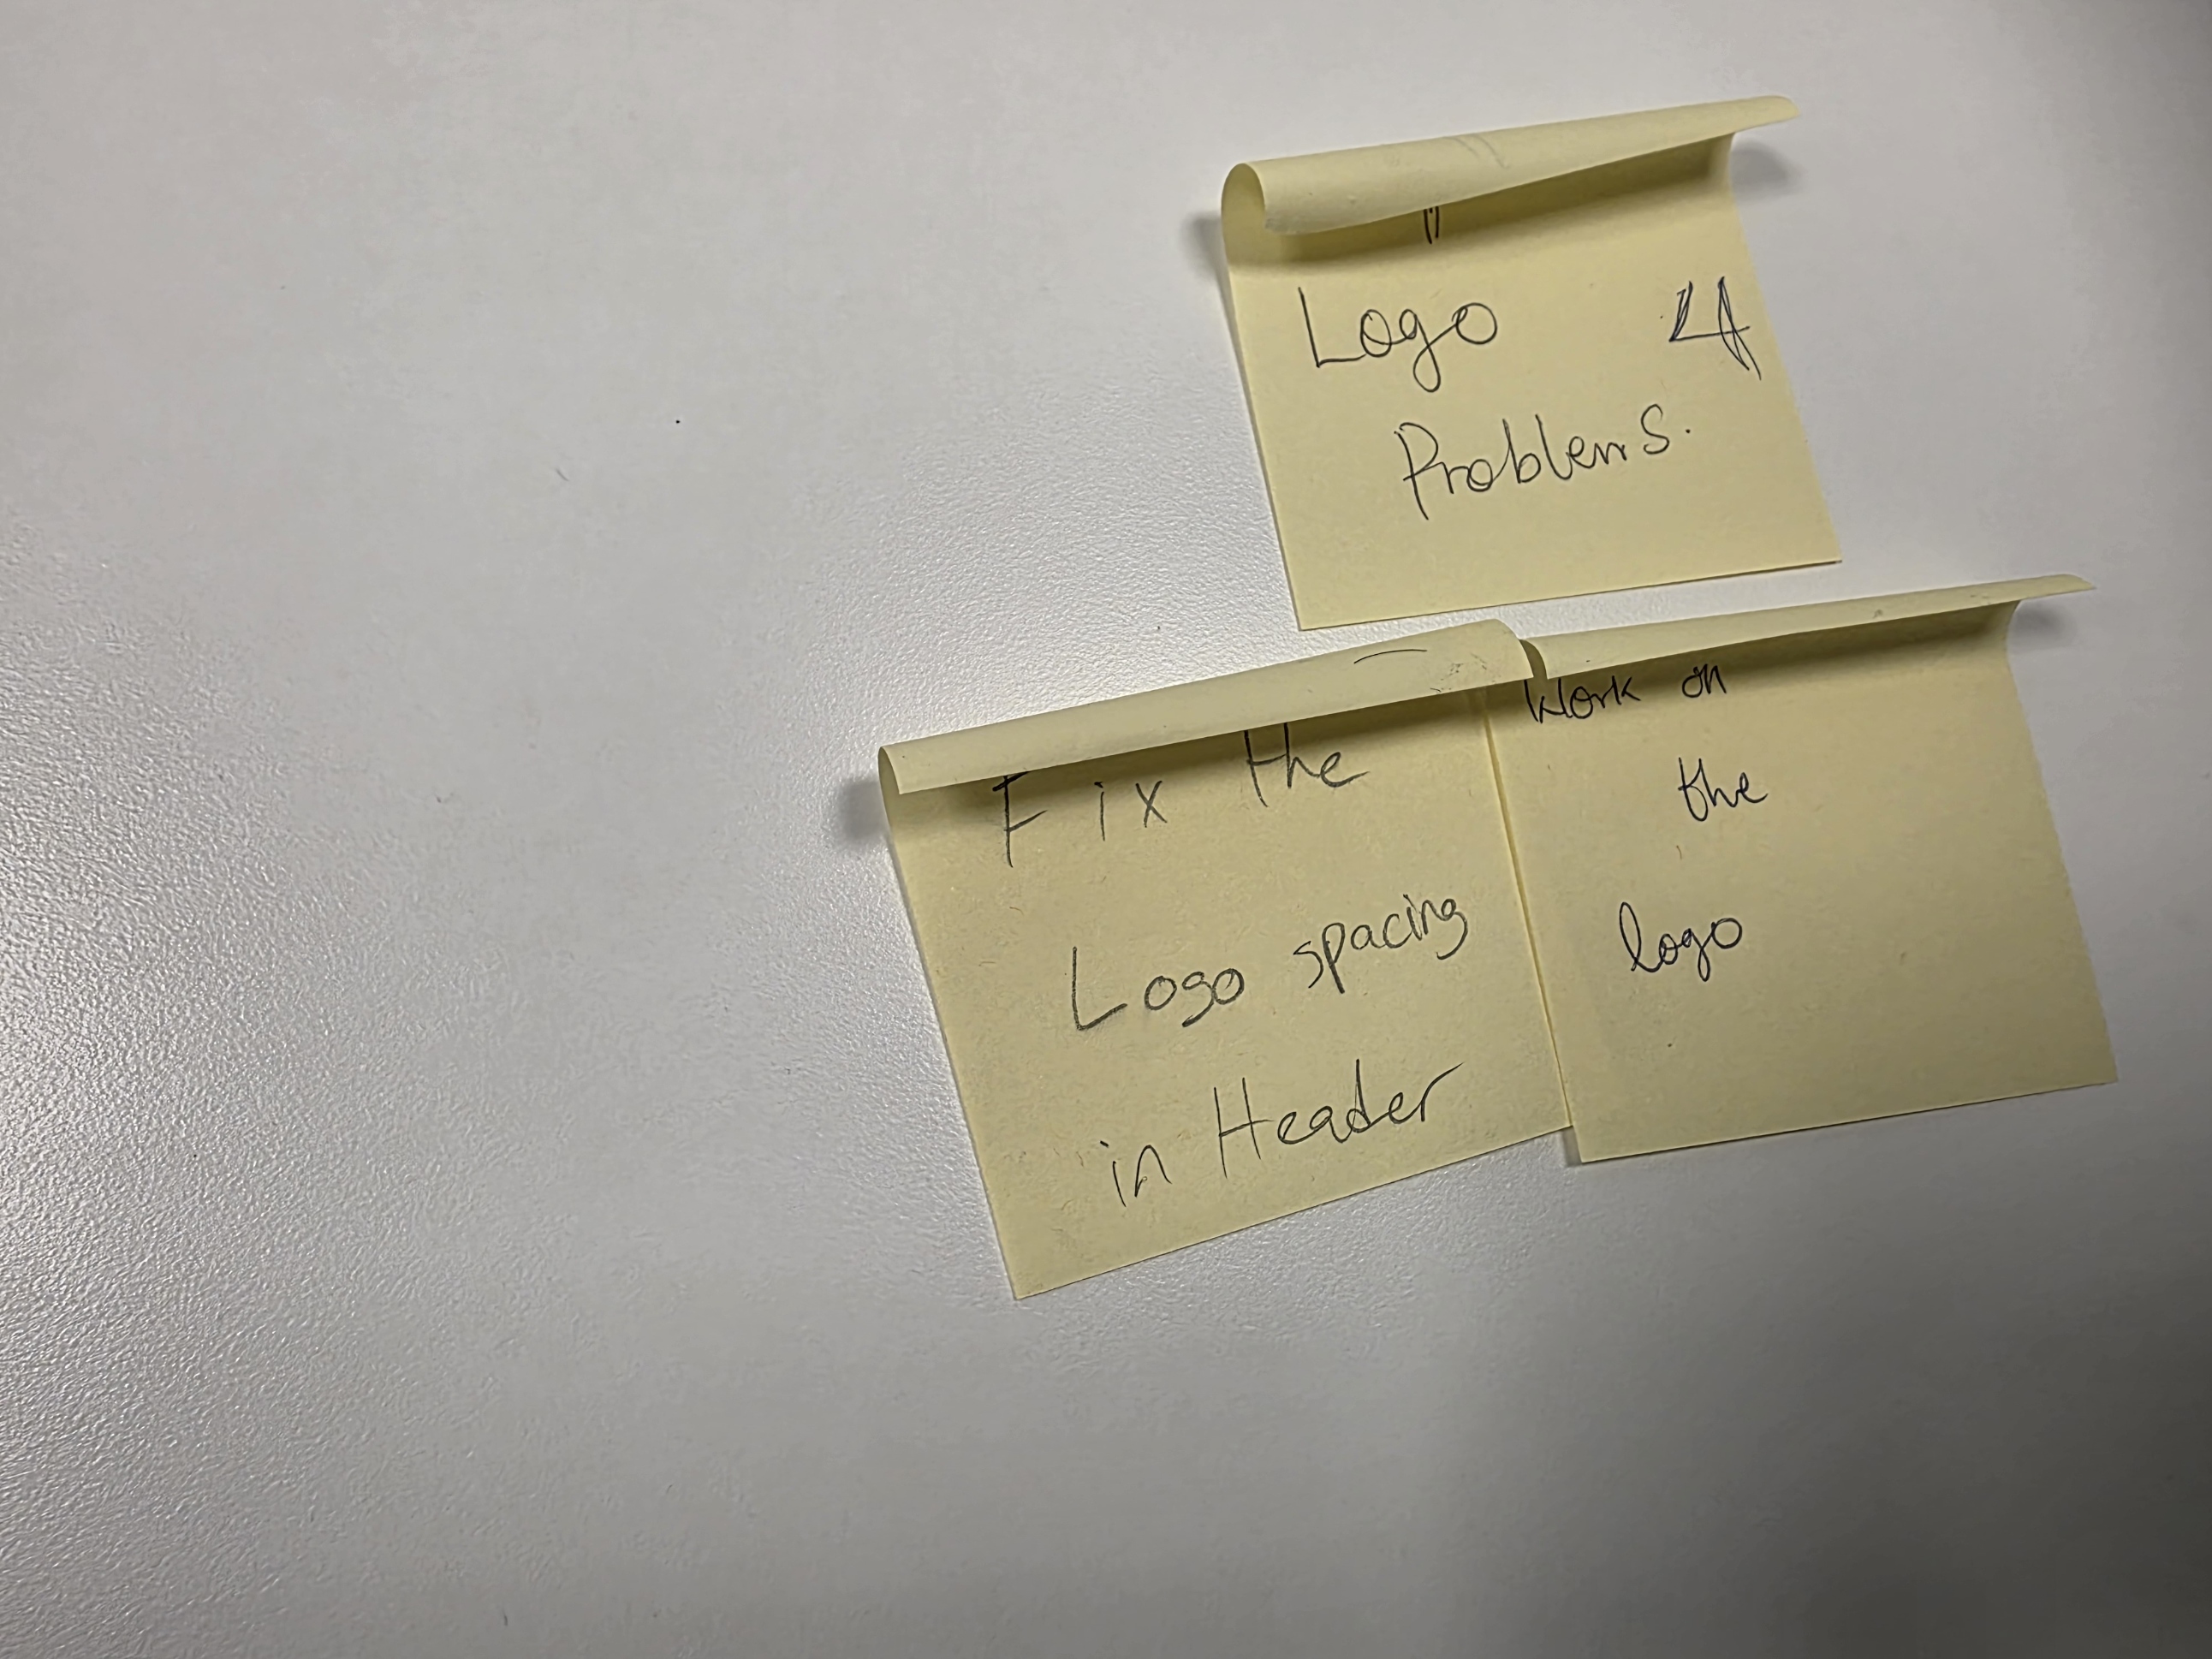 Logo 4
Problems.
Fix the
Logo spacing
in Header
Work on
the
logo